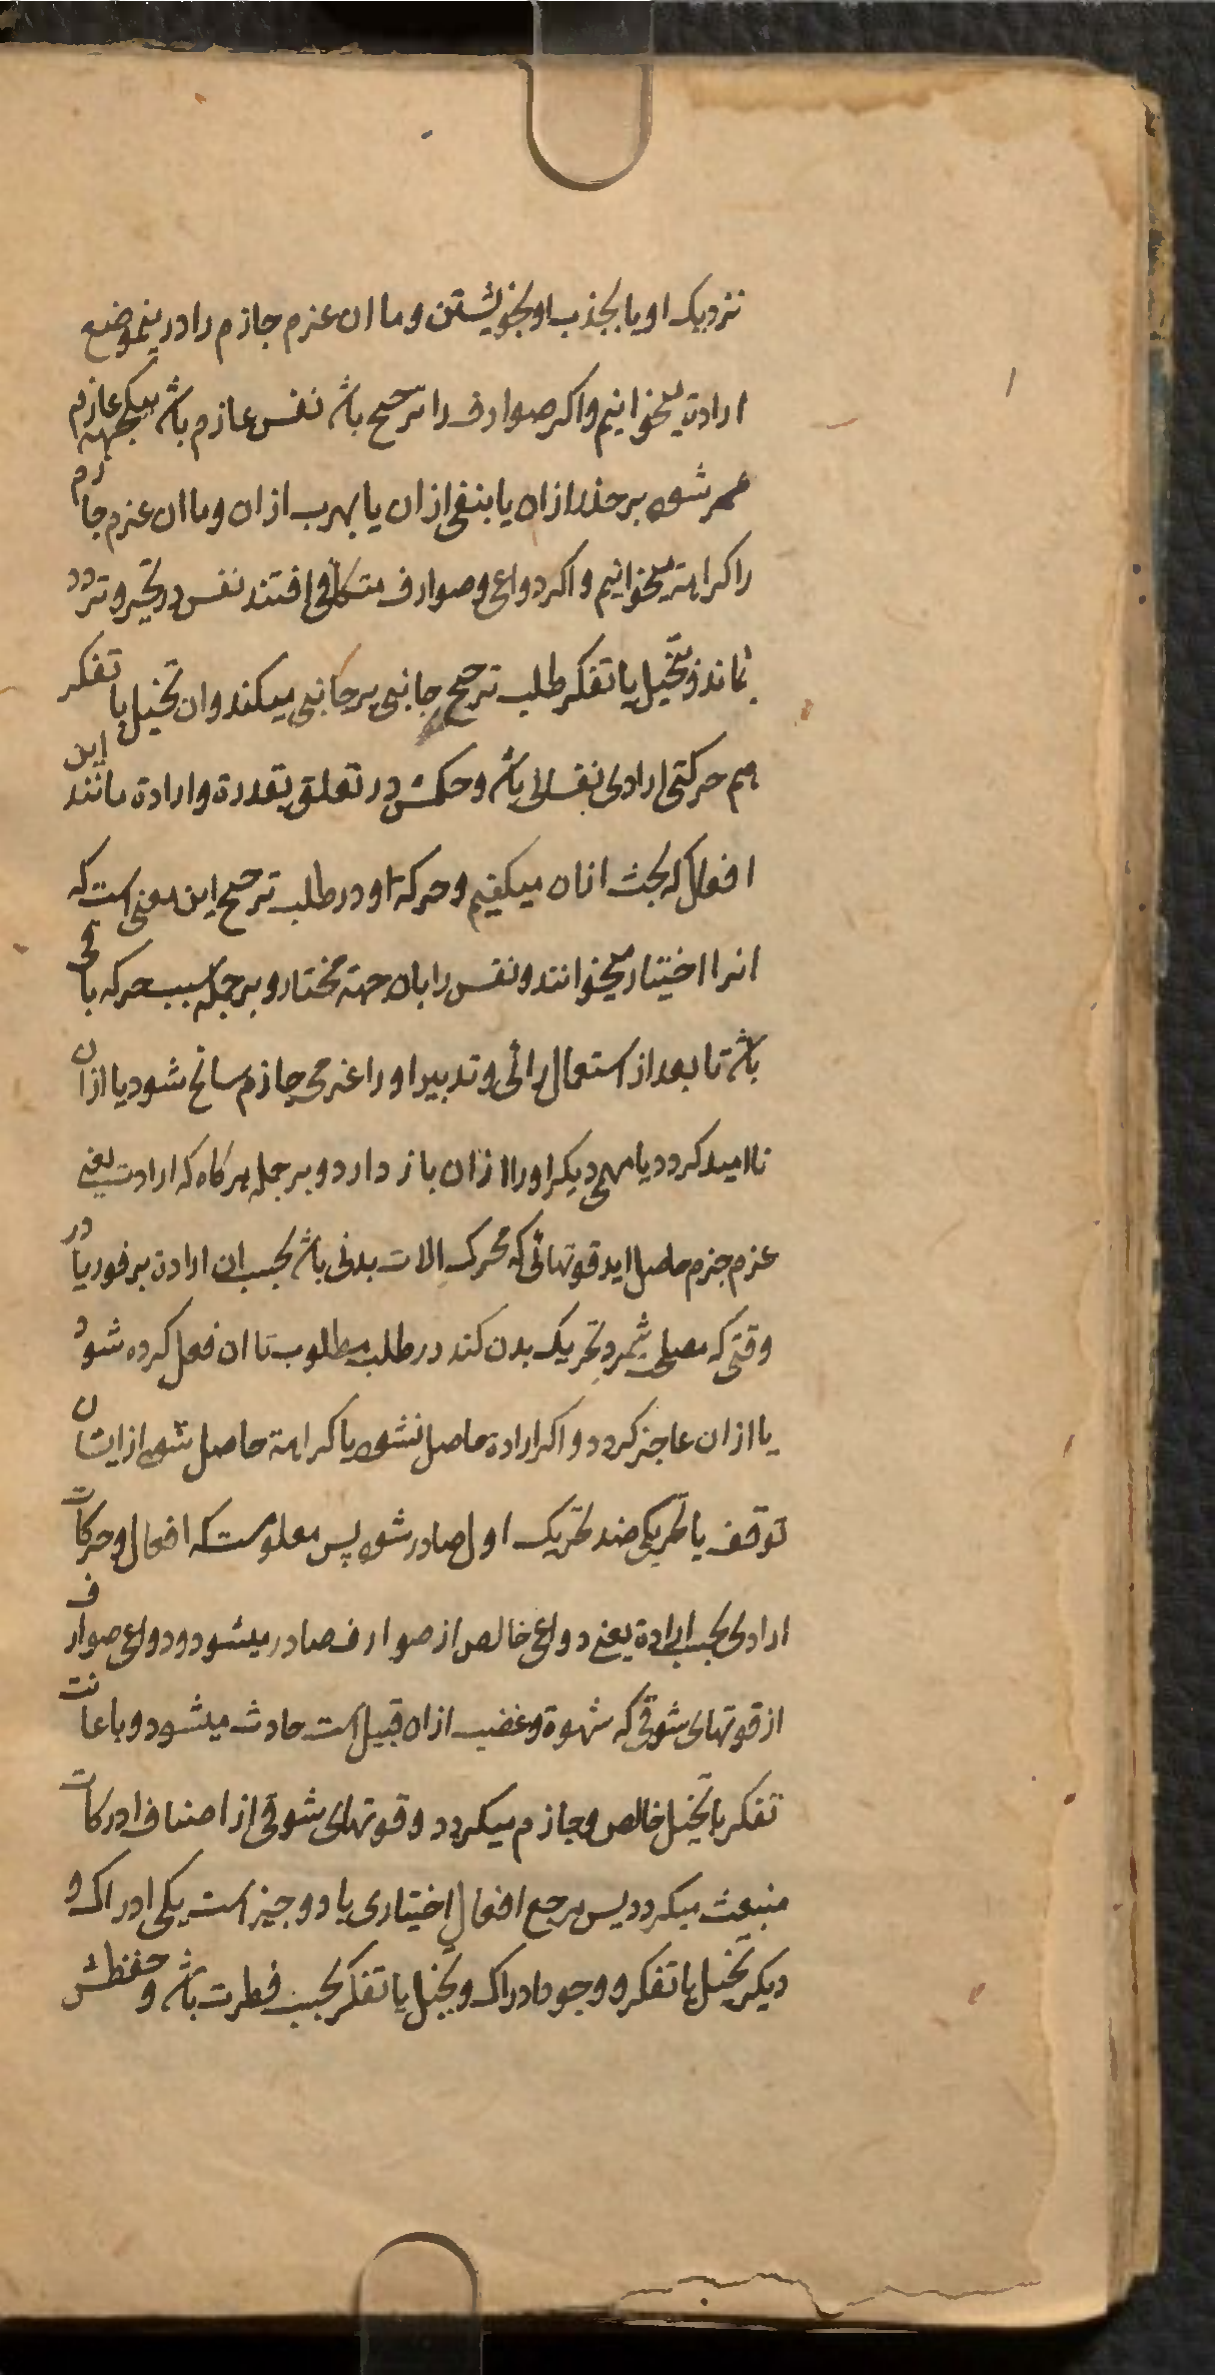 نزدیک او یا بجذب او بخویشتن و ما ان عزم جازم را درینموضع
ارادة میخوانیم و اکر صوارف را ترجیح باشد نفس عازم باشد بیکجهة عازم
شود بر حذر ازان یا بنفی ازان یا بهرب ازان و ما ان عزم جازم
را کراهة میخوانیم و اکر دواعی و صوارف متکافی افتند نفس در تحیر و تردد
بماند و بتخیل یا تفکر طلب ترجیح جانبی بر جانبی میکند و ان تخیل یا تفکر
هم حرکتی ارادی نفسانی باشد و حکمش در تعلق بقدرة و ارادة مانند این
افعال که بحث ازان میکنیم و حرکة او در طلب ترجیح این معنی است که
انرا اختیار میخوانند و نفس را بان جهة مختار و بر جمله سبب حرکه باقی
باشد تا بعد از استعمال رائی و تدبیر او را عزمی جازم سانح شود یا ازان
ناامید کردد یا مهمی دیکر او را ازان باز دارد و بر جمله هر کاه که ارادت یعنی
عزم جزم حاصل اید قوتهائی که محرک الات بدنی باشد بحسب ان ارادة بر فور یا در
وقتی که مصلحی شمرد تحریک بدن کند در طلب مطلوب تا ان فعل کرده شود
یا ازان عاجز کردد و اکر ارادة حاصل نشود یا کراهة حاصل شود ازایشان
توقف یا تحریکی ضد تحریک اول صادر شود پس معلومست که افعال و حرکات
ارادی بحسب ارادة یعنی دواعی خالص از صوارف صادر میشود و دواعی صوارف
از قوتهای شوقی که شهوة و غضب ازان قبیل است حادث میشود و باعانت
تفکر یا تخیل خالص و جازم میکردد و قوتهای شوقی از اصناف ادرکات
منبعث میکردد پس مرجع افعال اختیاری با دو چیز است یکی ادراک و
دیکر تخیل یا تفکر و وجود ادراک و تخیل یا تفکر بحسب فطرت باشد و حفظش